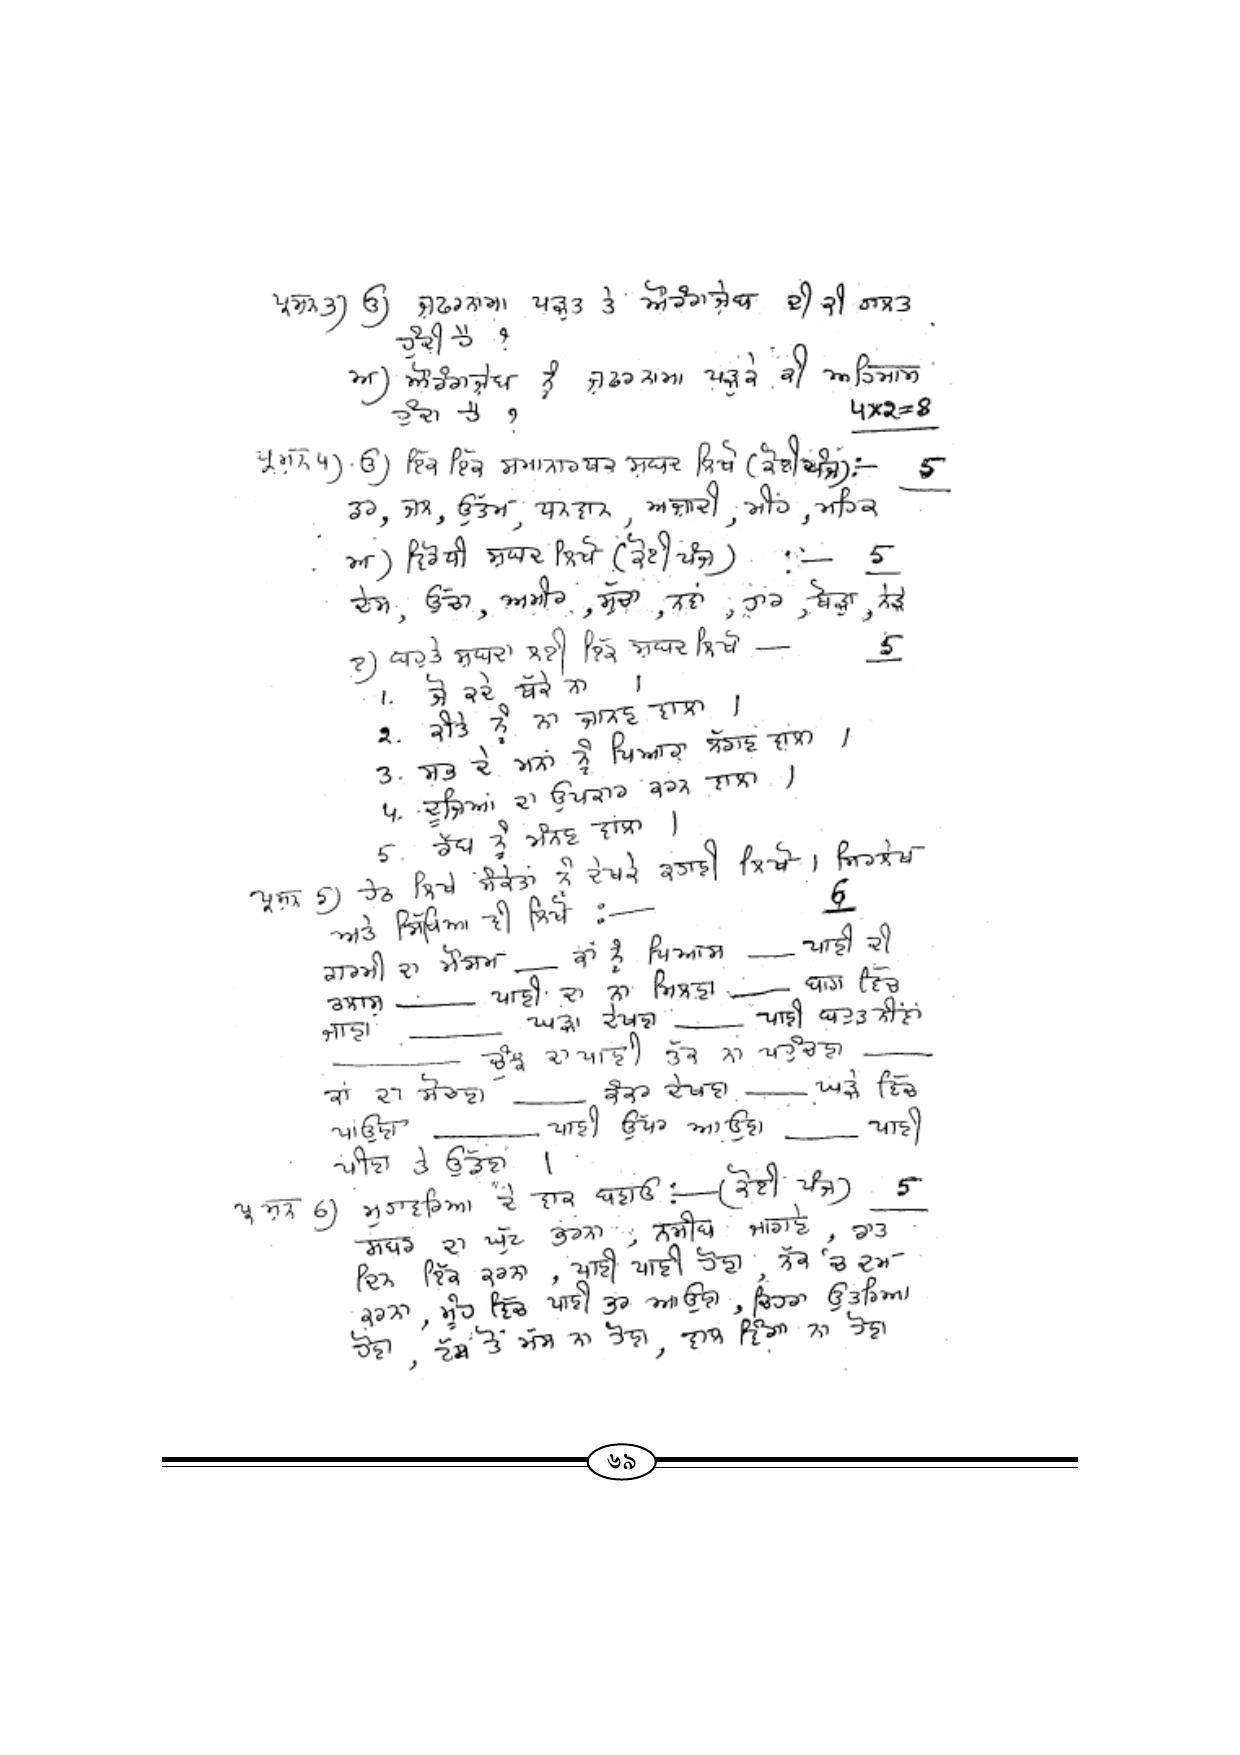 ਪ੍ਰਸ਼ਨ 3) ੳ) ਜ਼ਫਰਨਾਮਾ ਪੜ੍ਹਤ ਤੇ ਔਰੰਗਜ਼ੇਬ ਦੀ ਕੀ ਹਾਲਤ
ਹੁੰਦੀ ਹੈ ?
ਅ) ਔਰੰਗਜ਼ੇਬ ਨੂੰ ਜ਼ਫਰਨਾਮਾ ਪੜ੍ਹਕੇ ਕੀ ਅਹਿਸਾਸ
ਹੁੰਦਾ ਹੈ ?
4x2=8
ਪ੍ਰਸ਼ਨ 4) ੳ) ਇੱਕ ਇੱਕ ਸਮਾਨਾਰਥਕ ਸ਼ਬਦ ਲਿਖੋ (ਕੋਈ ਪੰਜ):— 5
ਡਰ, ਜਲ, ਉੱਤਮ, ਧਨਵਾਨ, ਅਜ਼ਾਦੀ, ਮੀਂਹ, ਮਹਿਕ
ਅ) ਵਿਰੋਧੀ ਸ਼ਬਦ ਲਿਖੋ (ਕੋਈ ਪੰਜ) :— 5
ਦੇਸ਼, ਉੱਚਾ, ਅਮੀਰ, ਸੁੱਚਾ, ਨਵਾਂ, ਹਾਰ, ਥੋੜ੍ਹਾ, ਨੇੜੇ
ੲ) ਬਹੁਤੇ ਸ਼ਬਦਾਂ ਲਈ ਇੱਕ ਸ਼ਬਦ ਲਿਖੋ — 5
1. ਜੋ ਕਦੇ ਥੱਕੇ ਨਾ ।
2. ਕੀਤੇ ਨੂੰ ਨਾ ਜਾਨਣ ਵਾਲਾ ।
3. ਸਭ ਦੇ ਮਨਾਂ ਨੂੰ ਪਿਆਰਾ ਲੱਗਣ ਵਾਲਾ ।
4. ਦੂਜਿਆਂ ਦਾ ਉਪਕਾਰ ਕਰਨ ਵਾਲਾ ।
5. ਰੱਬ ਨੂੰ ਮੰਨਣ ਵਾਲਾ ।
ਪ੍ਰਸ਼ਨ 5) ਹੇਠ ਲਿਖੇ ਸੰਕੇਤਾਂ ਨੂੰ ਦੇਖਕੇ ਕਹਾਣੀ ਲਿਖੋ । ਸਿਰਲੇਖ
ਅਤੇ ਸਿੱਖਿਆ ਵੀ ਲਿਖੋ :— 6
ਗਰਮੀ ਦਾ ਮੌਸਮ ___ ਕਾਂ ਨੂੰ ਪਿਆਸ ___ ਪਾਣੀ ਦੀ
ਤਲਾਸ਼ ___ ਪਾਣੀ ਦਾ ਨਾ ਮਿਲਣਾ ___ ਬਾਗ ਵਿੱਚ
ਜਾਣਾ ___ ਘੜਾ ਦੇਖਣਾ ___ ਪਾਣੀ ਬਹੁਤ ਨੀਵਾਂ
___ ਚੁੰਝ ਦਾ ਪਾਣੀ ਤੱਕ ਨਾ ਪਹੁੰਚਣਾ ___
ਕਾਂ ਦਾ ਸੋਚਣਾ ___ ਕੰਕਰ ਦੇਖਣਾ ___ ਘੜੇ ਵਿੱਚ
ਪਾਉਣਾ ___ ਪਾਣੀ ਉੱਪਰ ਆਉਣਾ ___ ਪਾਣੀ
ਪੀਣਾ ਤੇ ਉੱਡਣਾ ।
ਪ੍ਰਸ਼ਨ 6) ਮੁਹਾਵਰਿਆਂ ਦੇ ਵਾਕ ਬਣਾਓ :—(ਕੋਈ ਪੰਜ) 5
ਸਬਰ ਦਾ ਘੁੱਟ ਭਰਨਾ, ਨਸੀਬ ਜਾਗਣੇ, ਰਾਤ
ਦਿਨ ਇੱਕ ਕਰਨਾ, ਪਾਣੀ ਪਾਣੀ ਹੋਣਾ, ਨੱਕ 'ਚ ਦਮ
ਕਰਨਾ, ਮੂੰਹ ਵਿੱਚ ਪਾਣੀ ਭਰ ਆਉਣਾ, ਚਿਹਰਾ ਉਤਰਿਆ
ਹੋਣਾ, ਟੱਸ ਤੋਂ ਮੱਸ ਨਾ ਹੋਣਾ, ਵਾਲ ਵਿੰਗਾ ਨਾ ਹੋਣਾ
੬੯